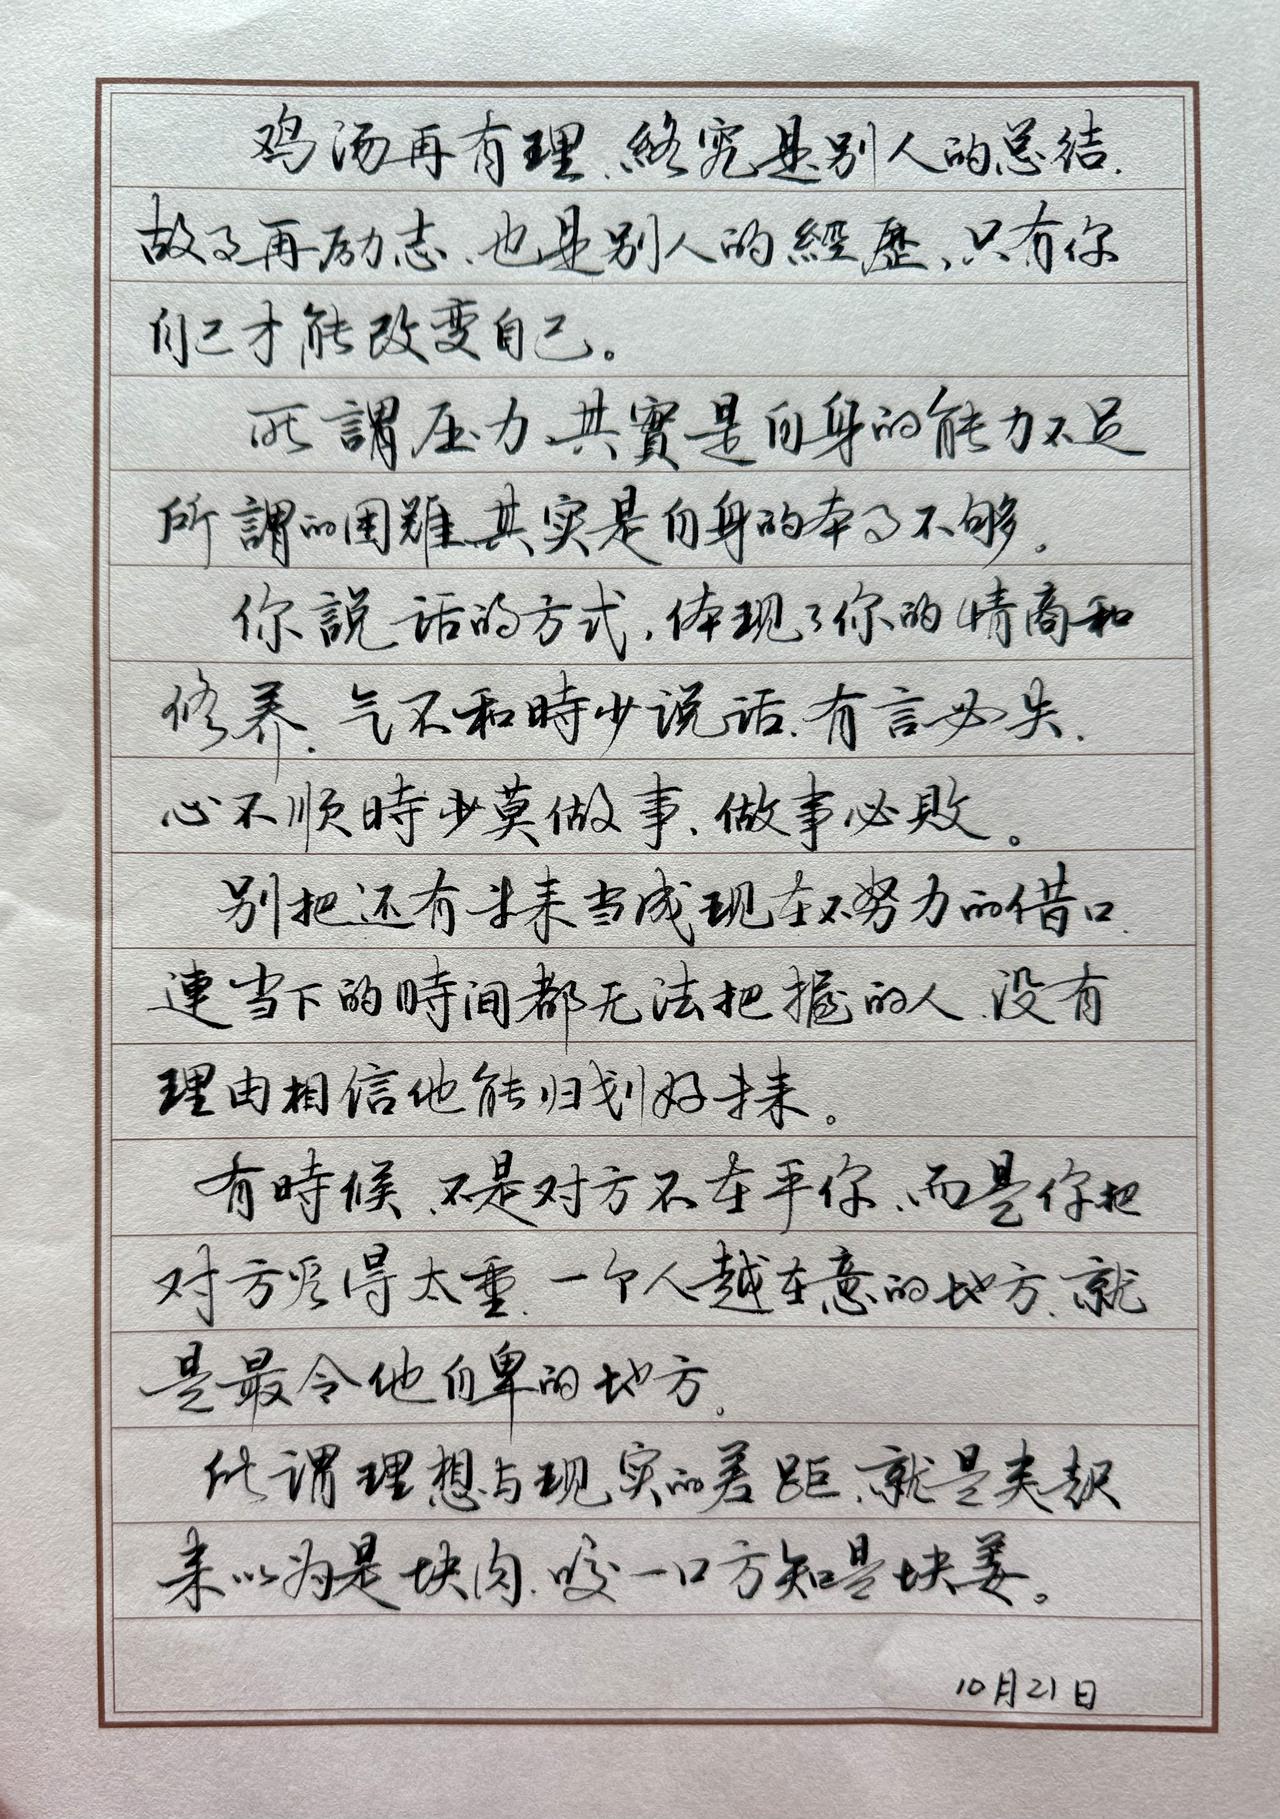 鸡汤再有理、终究是别人的总结.
故事再励志、也是别人的經歷、只有你
自己才能改变自己。
所謂压力、其實是自身的能力不足
所謂的困難、其实是自身的本事不够。
你説话的方式，体现了你的情商和
修养. 气不和時少说话. 有言必失.
心不顺時少莫做事、做事必败。
别把还有未来当成现在不努力的借口.
連当下的時间都无法把握的人、没有
理由相信他能归划好未来。
有時候、不是对方不在乎你、而是你把
对方看得太重. 一个人越在意的地方. 就
是最令他自卑的地方。
所谓理想与现实的差距、就是夹起
来以为是块肉. 咬一口方知是块姜。
10月21日